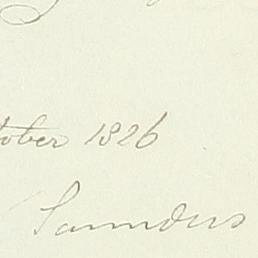 tober 1826
Saunders